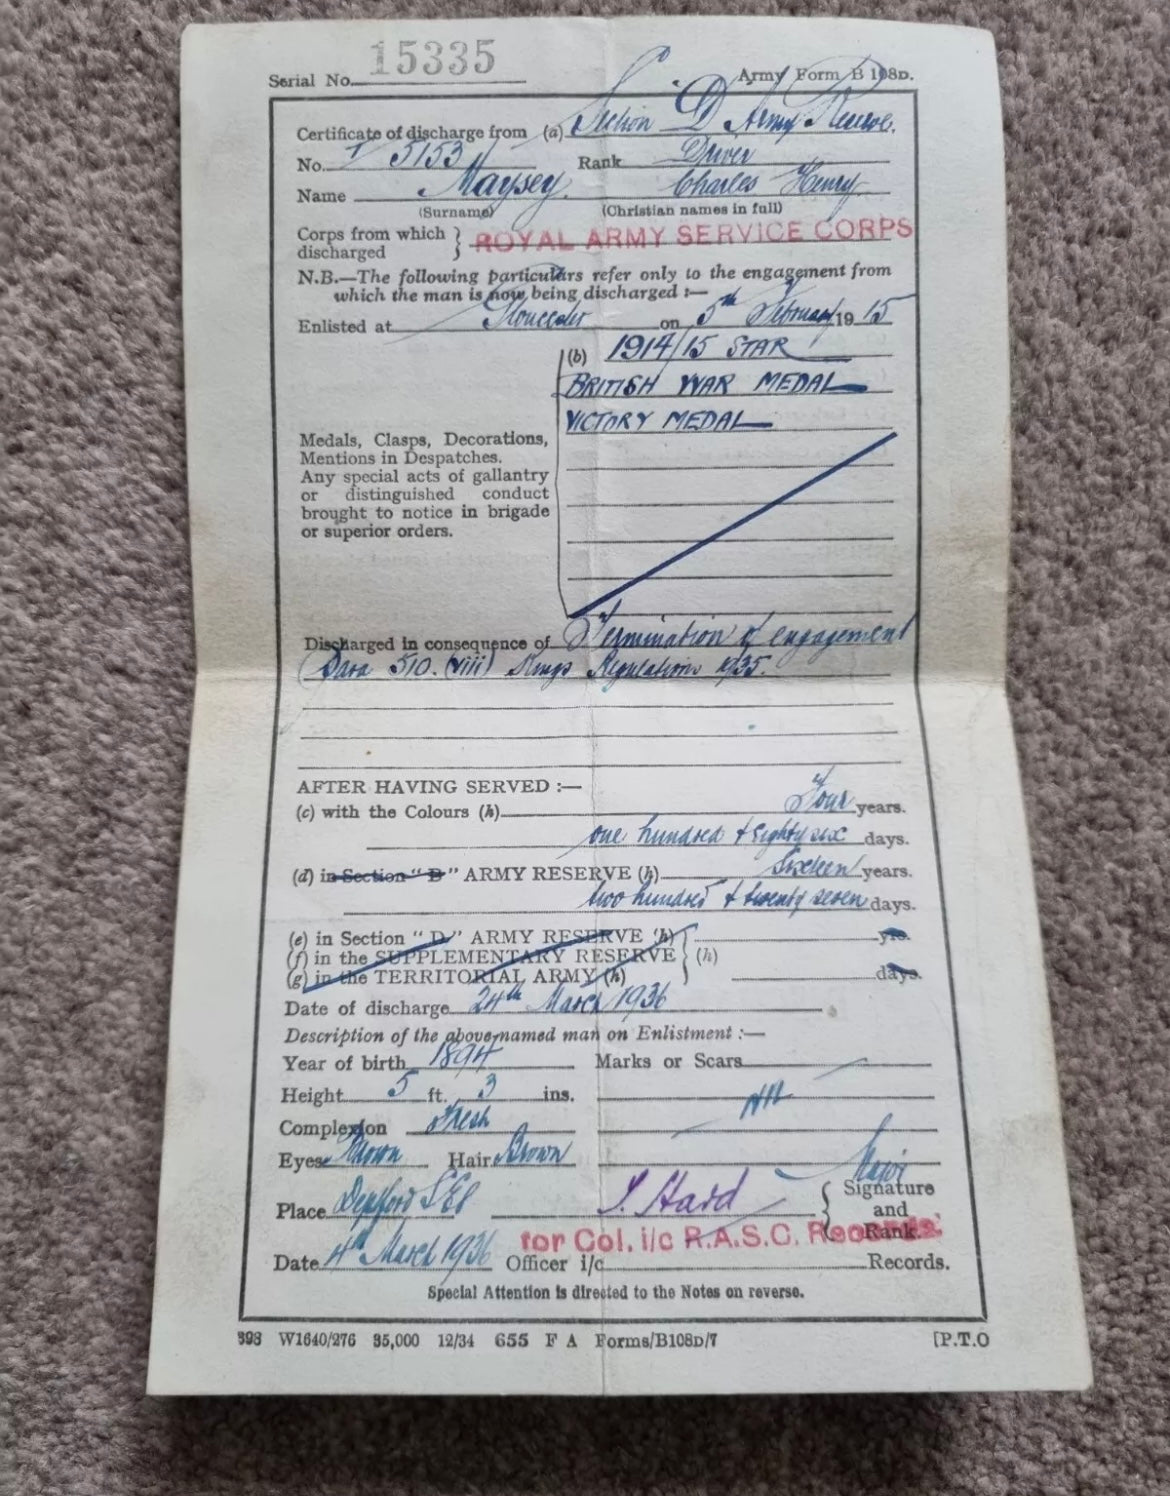 Serial No. 15335 Army Form B 108D.
Certificate of discharge from (a) Section D Army Reserve.
No. T/5153 Rank Driver
Name Maysey. Charles Henry
(Surname) (Christian names in full)
Corps from which discharged } ROYAL ARMY SERVICE CORPS
N.B.—The following particulars refer only to the engagement from
which the man is now being discharged :—
Enlisted at Gloucester on 5th February 1915
(b) 1914/15 STAR
BRITISH WAR MEDAL
VICTORY MEDAL
Medals, Clasps, Decorations,
Mentions in Despatches.
Any special acts of gallantry
or distinguished conduct
brought to notice in brigade
or superior orders.
Discharged in consequence of Termination of engagement
Para 510. (viii) Kings Regulations 1935.
AFTER HAVING SERVED :—
(c) with the Colours (h) Four years.
one hundred & eighty six days.
(d) in Section "B" ARMY RESERVE (h) Sixteen years.
two hundred & twenty seven days.
(e) in Section "D" ARMY RESERVE (h) yrs.
(f) in the SUPPLEMENTARY RESERVE } (h)
(g) in the TERRITORIAL ARMY (h) days.
Date of discharge 24th March 1936
Description of the above-named man on Enlistment :—
Year of birth 1894 Marks or Scars
Height 5 ft. 3 ins. Nil
Complexion Fresh
Eyes Brown Hair Brown
Place Deptford SE8 Hard Major { Signature and Rank.
for Col. i/c R.A.S.C. Records.
Date 4th March 1936 Officer i/c Records.
Special Attention is directed to the Notes on reverse.
393 W1640/276 35,000 12/34 655 F A Forms/B108D/7 [P.T.O